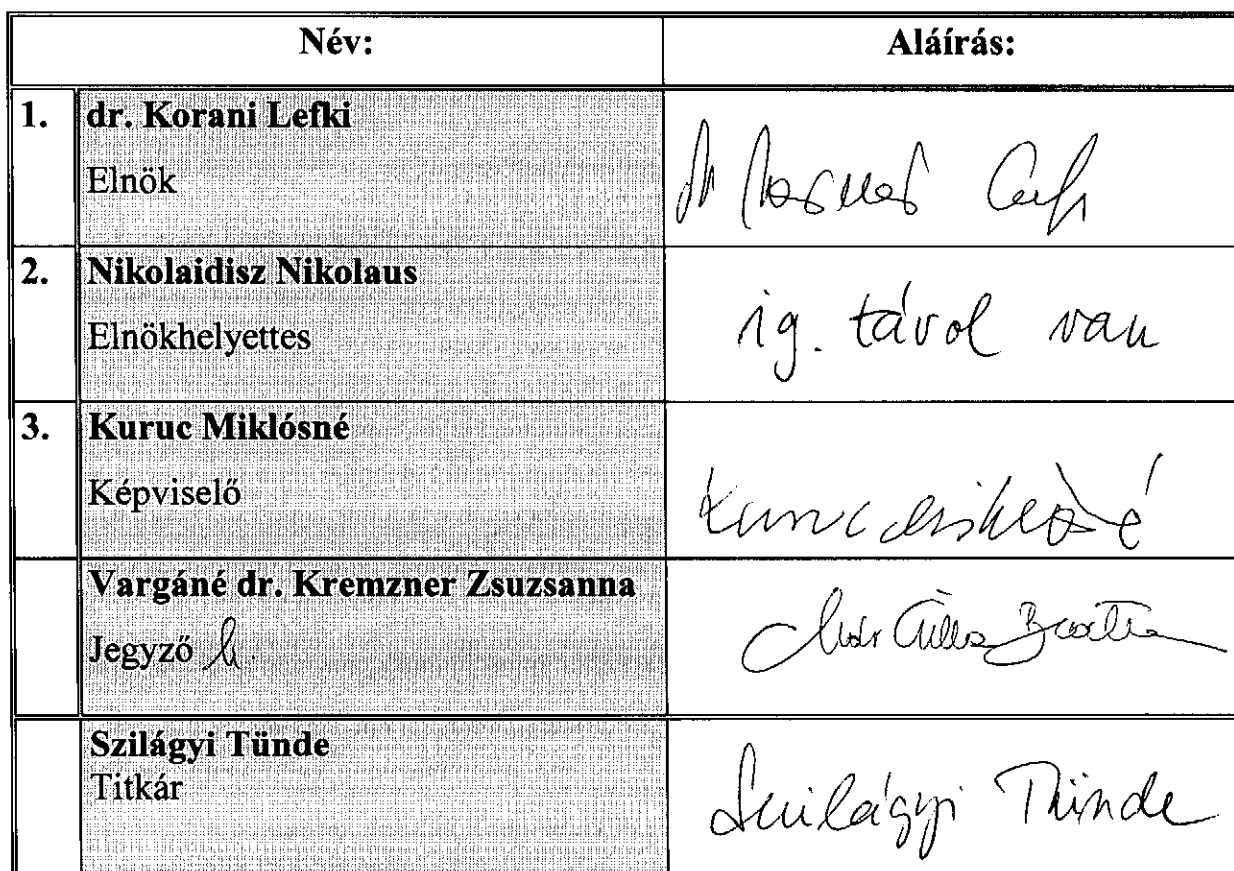 Név: Aláírás:
1. dr. Korani Lefki
Elnök
dr
2. Nikolaidisz Nikolaus
Elnökhelyettes
ig. távol van
3. Kuruc Miklósné
Képviselő
Kuruc Miklósné
Vargáné dr. Kremzner Zsuzsanna
Jegyző h.
Szilágyi Tünde
Titkár
Szilágyi Tünde